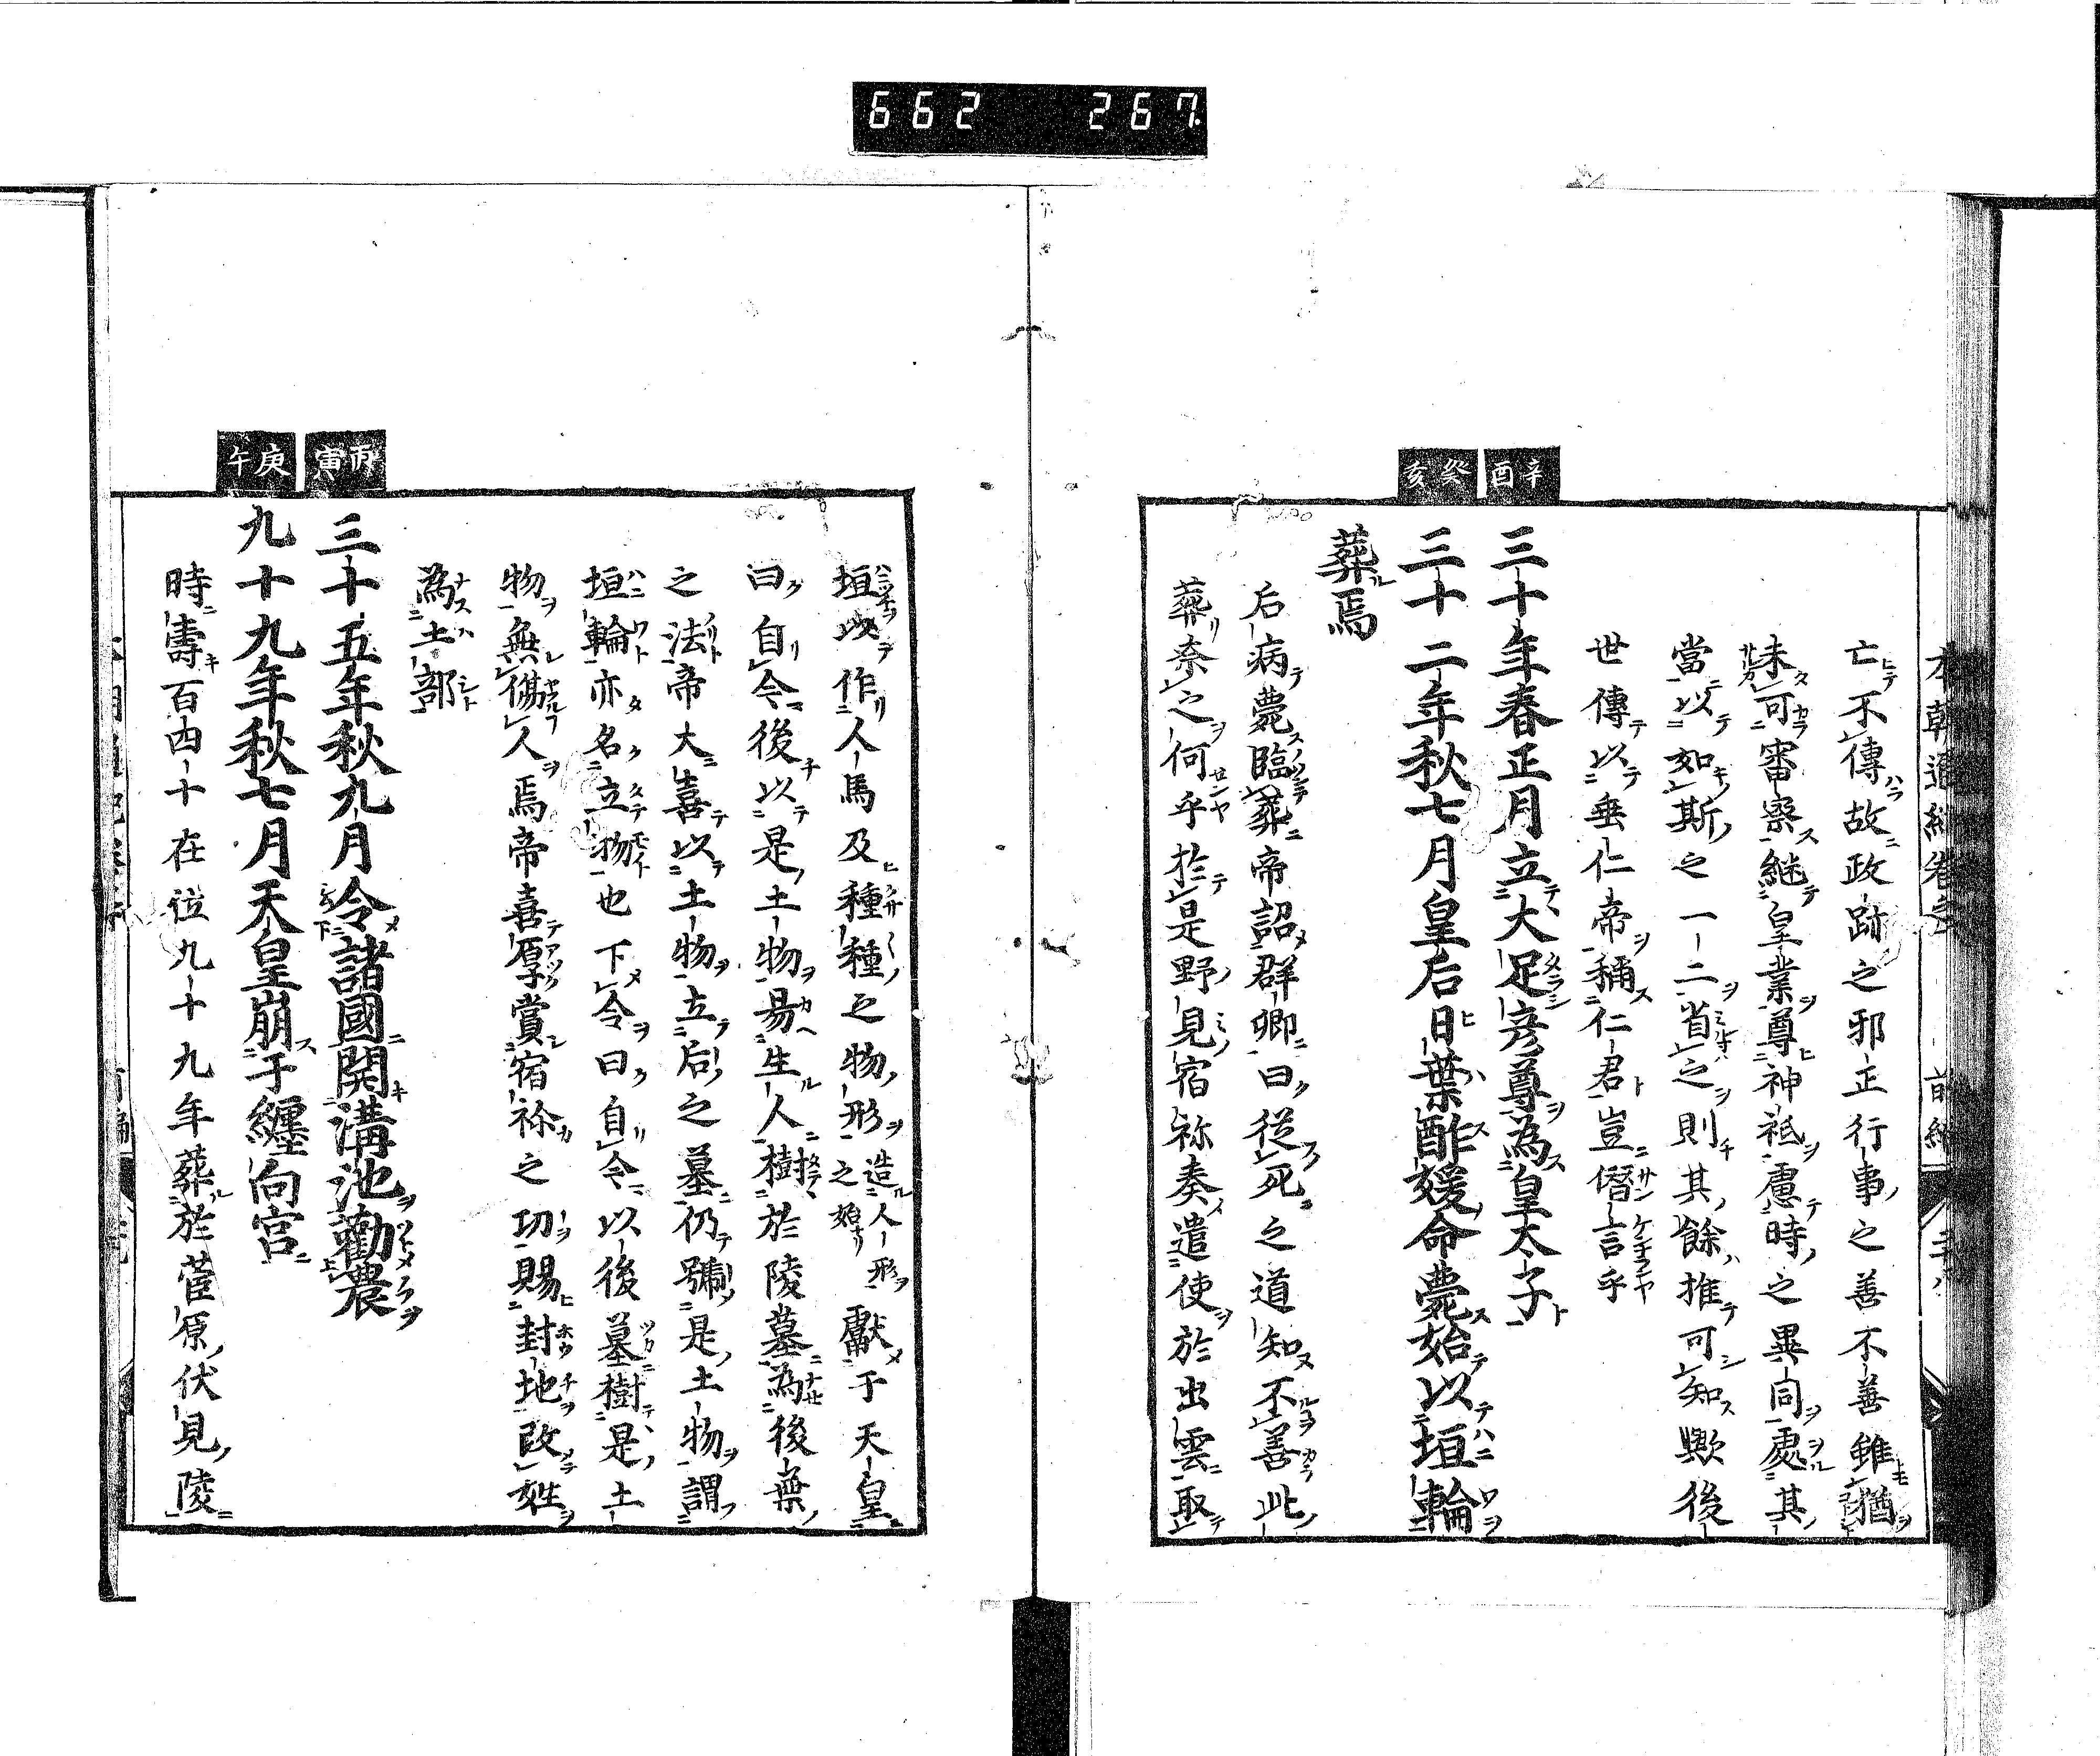 662 267
辛酉
癸亥
亡不傳故政跡之邪正行事之善不善雖猶
未可審察繼皇業尊神祇慮時之異同處其
當以如斯之一二省之則其餘推可知歟後
世傳以垂仁帝稱仁君豈僭言乎
三十年春正月立大足彦尊為皇太子
三十二年秋七月皇后日葉酢媛命薨始以垣輪
葬焉
后病薨臨葬帝詔群卿曰從死之道知不善此
葬奈之何乎於是野見宿祢奏遣使於出雲取
丙寅
庚午
垣以作人馬及種種之物形造人形之始献于天皇
曰自今後以是土物易生人樹於陵墓為後葉
之法帝大喜以土物立后之墓仍號是土物謂
垣輪亦名立物也下令曰自今以後墓樹是土
物無傷人焉帝喜厚賞宿祢之功賜封地改姓
為土部
三十五年秋九月令諸國開溝池勸農
九十九年秋七月天皇崩于纏向宮
時壽百四十在位九十九年葬於菅原伏見陵